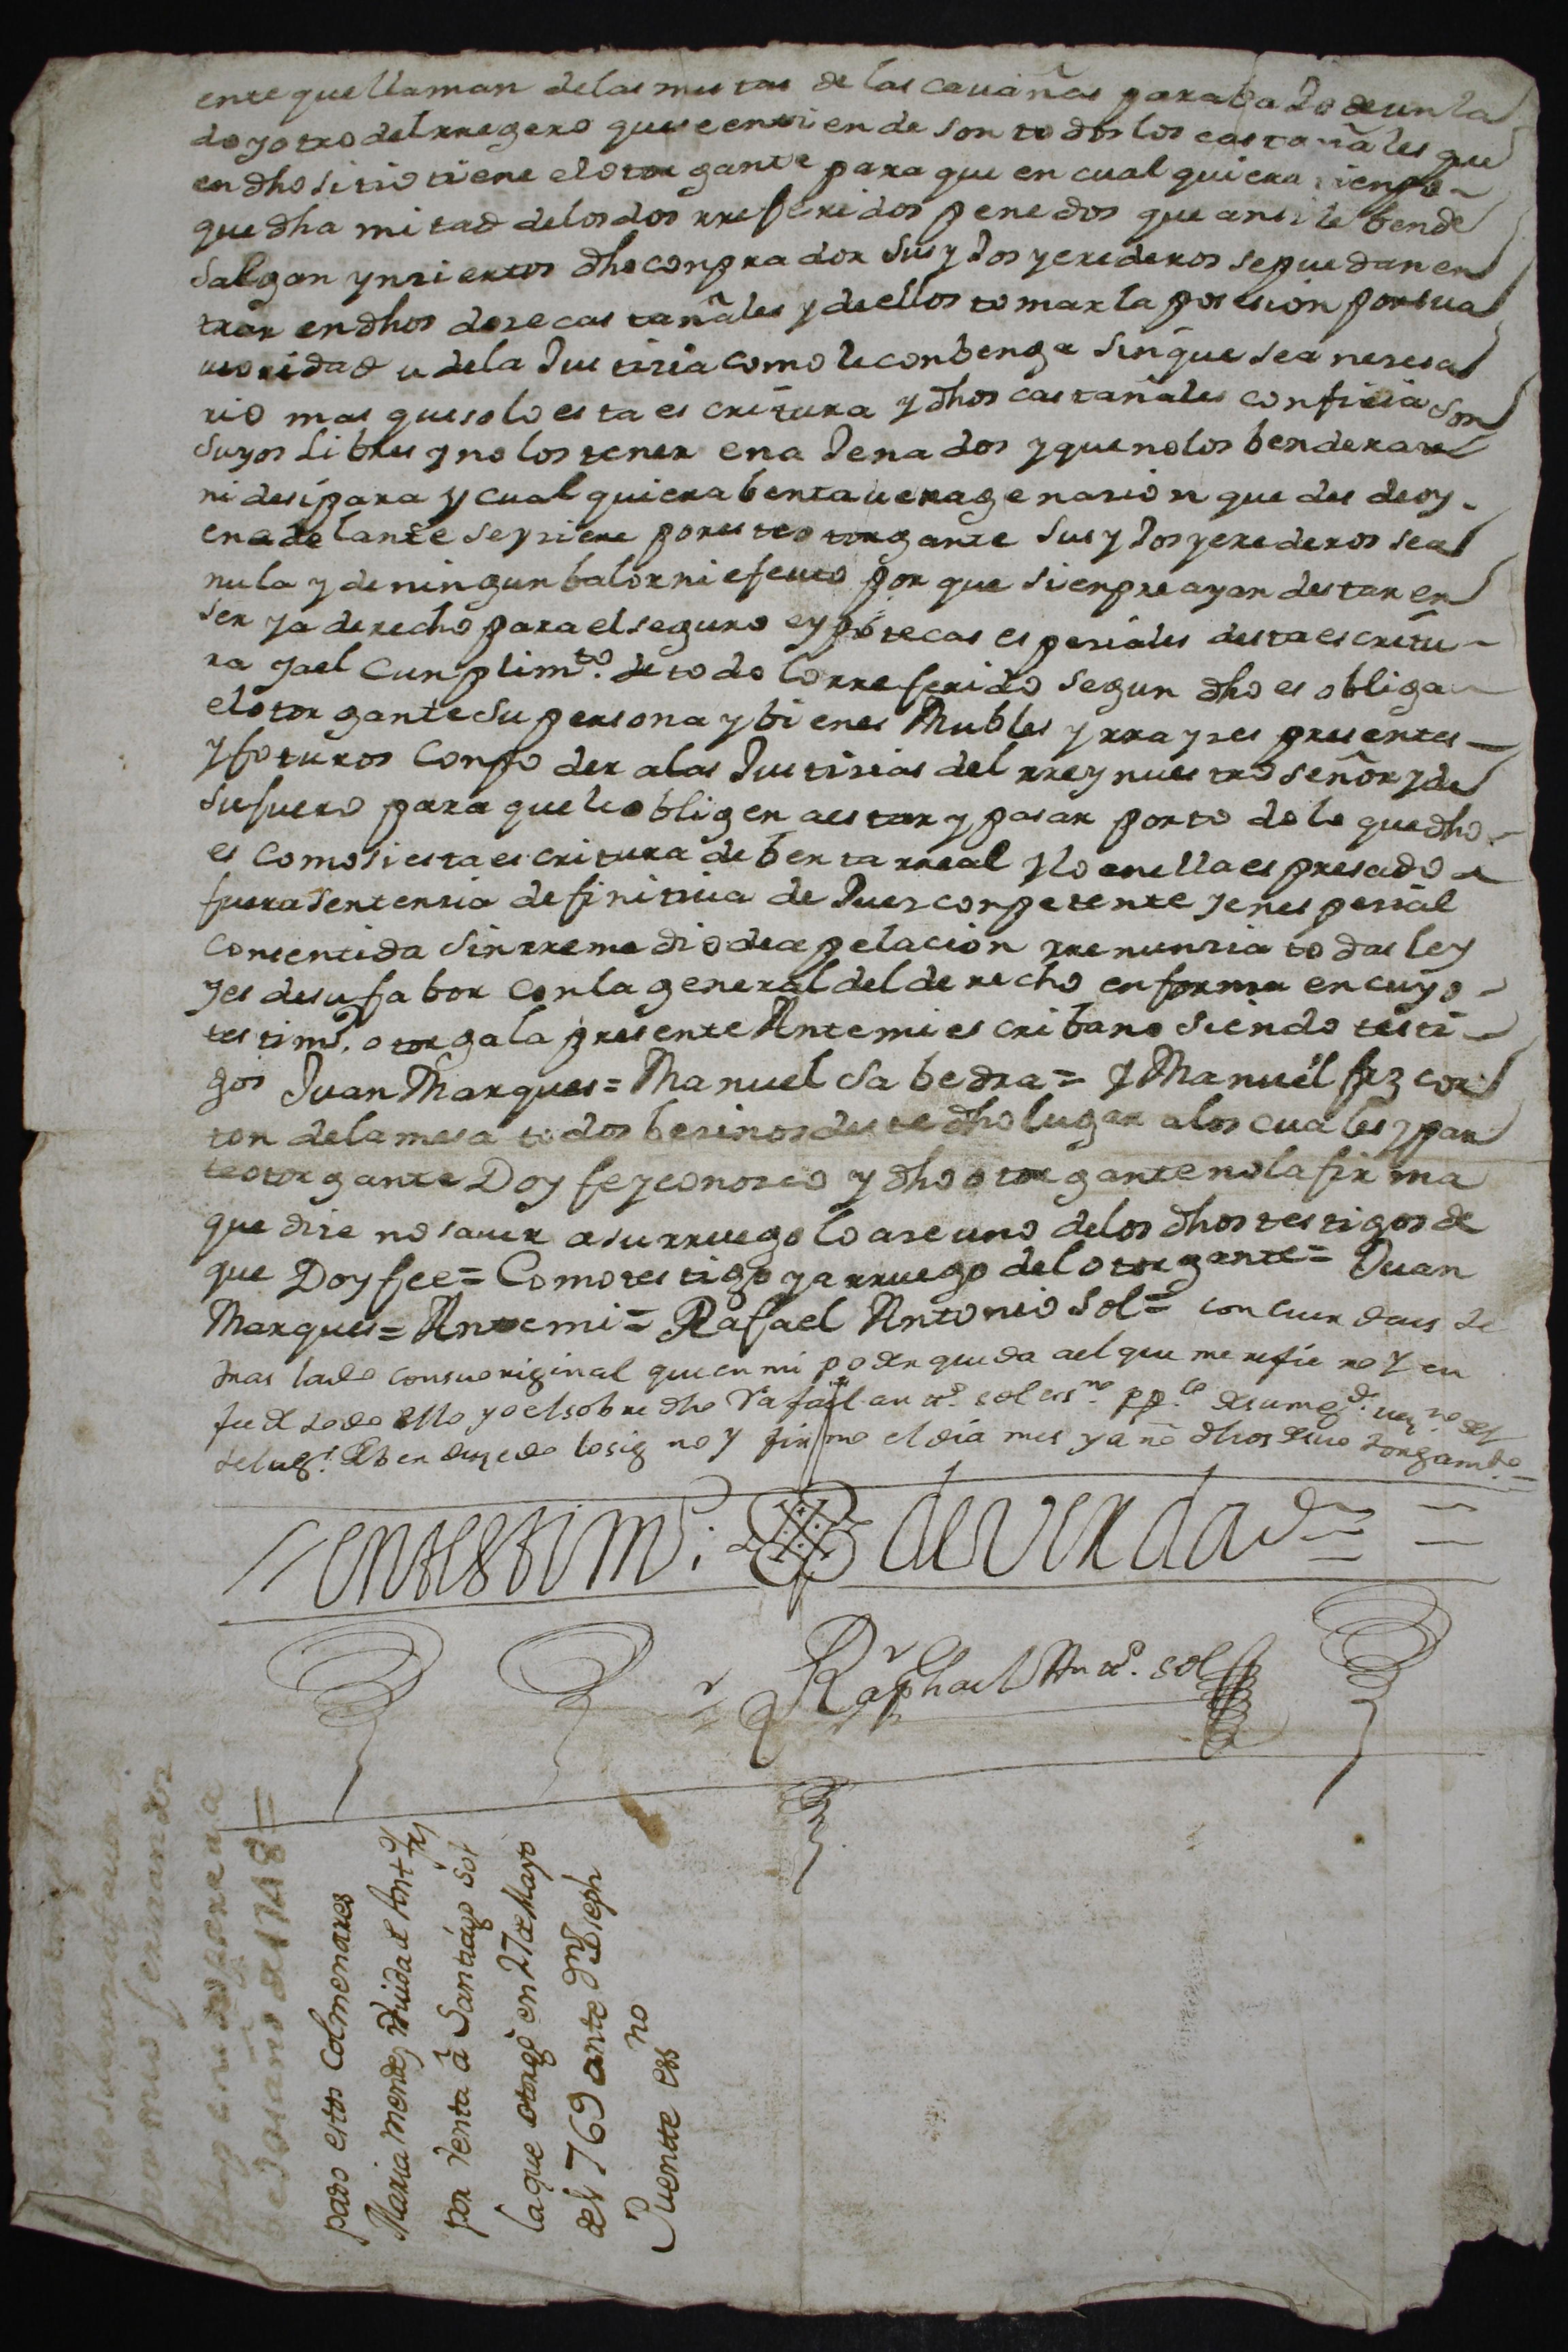 ente que llaman de las mestas de las cavañas para bajo de un la
do y otro del rregero que se entiende son todos los castañales que
en dho sitio tiene el otorgante para que en cualquiera tienpo
que dha mitad de los dos rreferidos penedos que ansi le bende
salgan ynsiertos dho conprador sus yjos y erederos se puedan en
trar en dhos dose castañales y de ellos tomar la posesion por su a
utoridad u de la Justisia como le conbenga sin que sea nesesa
rio mas que solo esta escritura y dhos castañales confiesa son
suyos Libres y no los tener enajenados y que no los bendera
ni desipara y cualquiera benta u enagenasion que des de oy
en adelante se ysiere por este otorgante sus yjos y erederos sea
nula y de ningun balor ni efeuto por que sienpre ayan destar en
ser y a derecho para el seguro e ypotecas espesiales desta escritu
ra y a el Cunplimto. de todo lo rreferido segun dho es obliga
el otorgante su persona y bienes Mubles y rrayses presentes
y foturos Con poder a las Justisias del rrey nuestro señor y de
su fuero para que le obligen a estar y pasar por todo lo que dho
es como si esta escritura de benta rreal y lo en ella espresado
fuera sentensia definitiua de Jues conpetente y en espesial
consentida sin rremedio de apelacion rrenunsia todas ley
yes de su fabor con la general del derecho en forma en cuyo
testimo. otorga la presente Ante mi escribano siendo testi
gos Juan Marques = Manuel Sabedra = y Manuel frz cor
ton de la mesa todos besinos deste dho lugar a los cuales y par
te otorgante Doy fe y conosco y dho otorgante no la firma
que dise no sauer a su rruego lo ase uno de los dhos testigos de
que Doy fee = Como testigo y a rruego del otorgante = Juan
Marques = Ante mi = Rafael Antonio Sol = concuerda este
traslado con su original que en mi poder queda a el que me refiero y en
fe de todo ello yo el sobre dho Rafael anto. sol esno. ppco de su magd. vezno
de lugr. lo signo y firmo el dia mes y año dhos de su otorgamto =
en testimo. de verdad =
Raphael Anto. sol
paso estos Colmenares
Maria Mendez Viuda de Anto frz
por Venta â Santiago Sol
la que otorgo en 27 de Mayo
del 769 ante Dn Joseph
Puente essno
fernandez
año de 1748 =